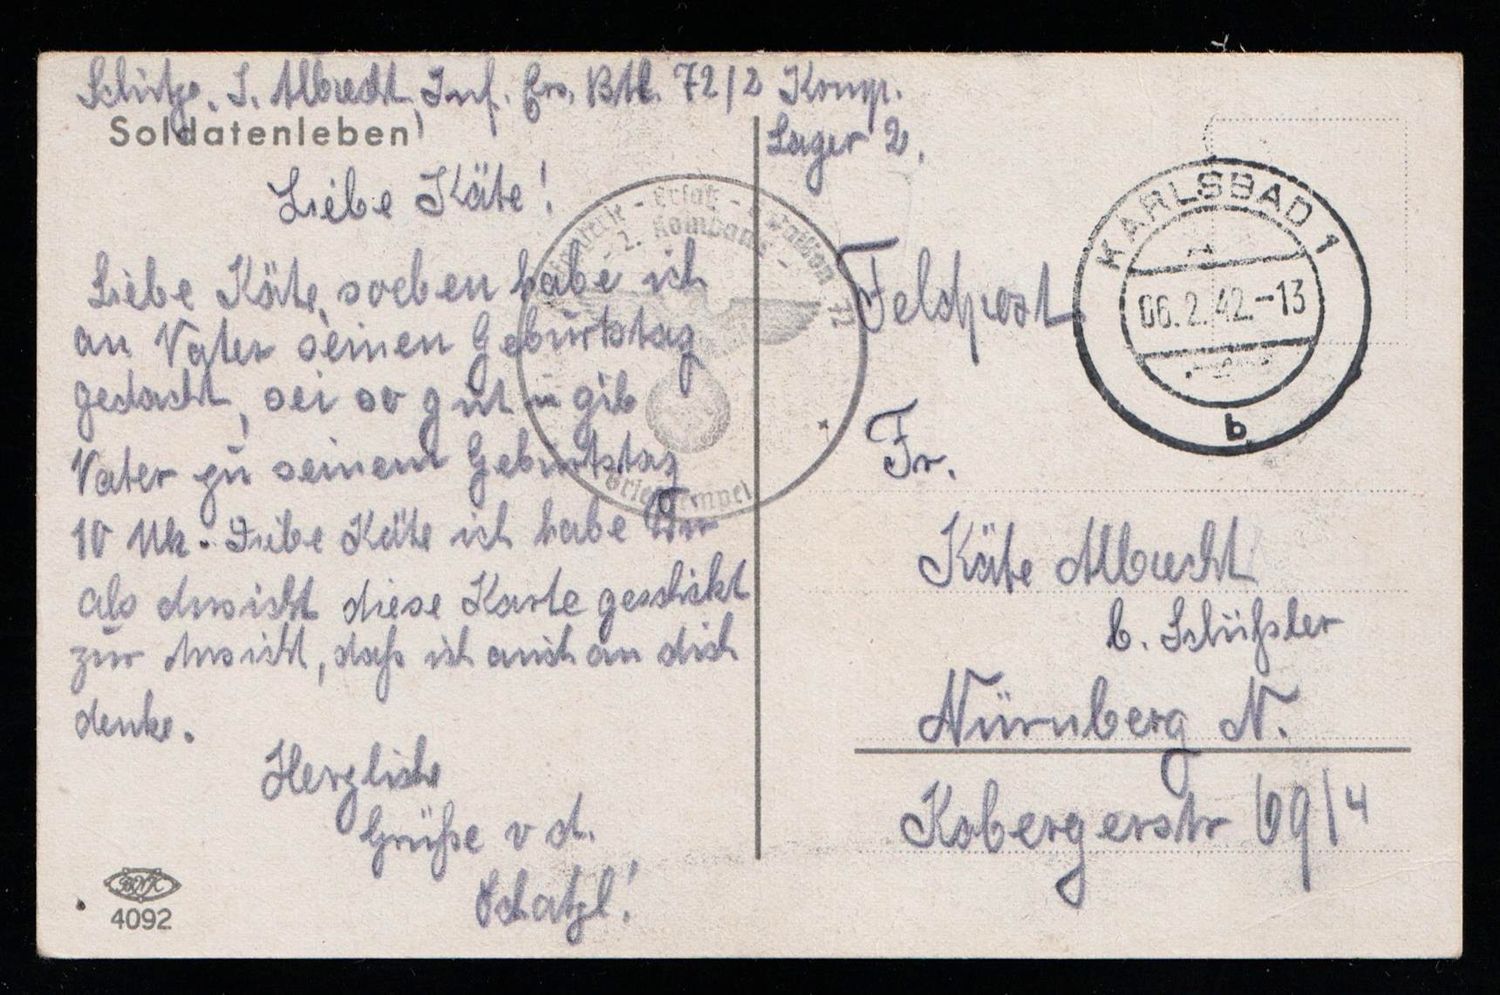 Schütze. J. Albrecht, Inf. Ers. Btl. 72/2 Komp.
Lager 2.
Soldatenleben
Liebe Käte!
Liebe Käte, soeben habe ich
an Vater seinen Geburtstag
gedacht, sei so gut u gib
Vater zu seinem Geburtstag
10 Mk. Liebe Käte ich habe Dir
als Ansicht diese Karte geschickt
zur Ansicht, daß ich auch an dich
denke.
Herzliche
Grüße v d.
Schatzl!
Infanterie - Ersatz - Bataillon 72
- 2. Kompanie -
Briefstempel
KARLSBAD 1
06.2.42.-13
b
Feldpost
Fr.
Käte Albrecht
b. Schüßler
Nürnberg N.
Kobergerstr 69/4
4092